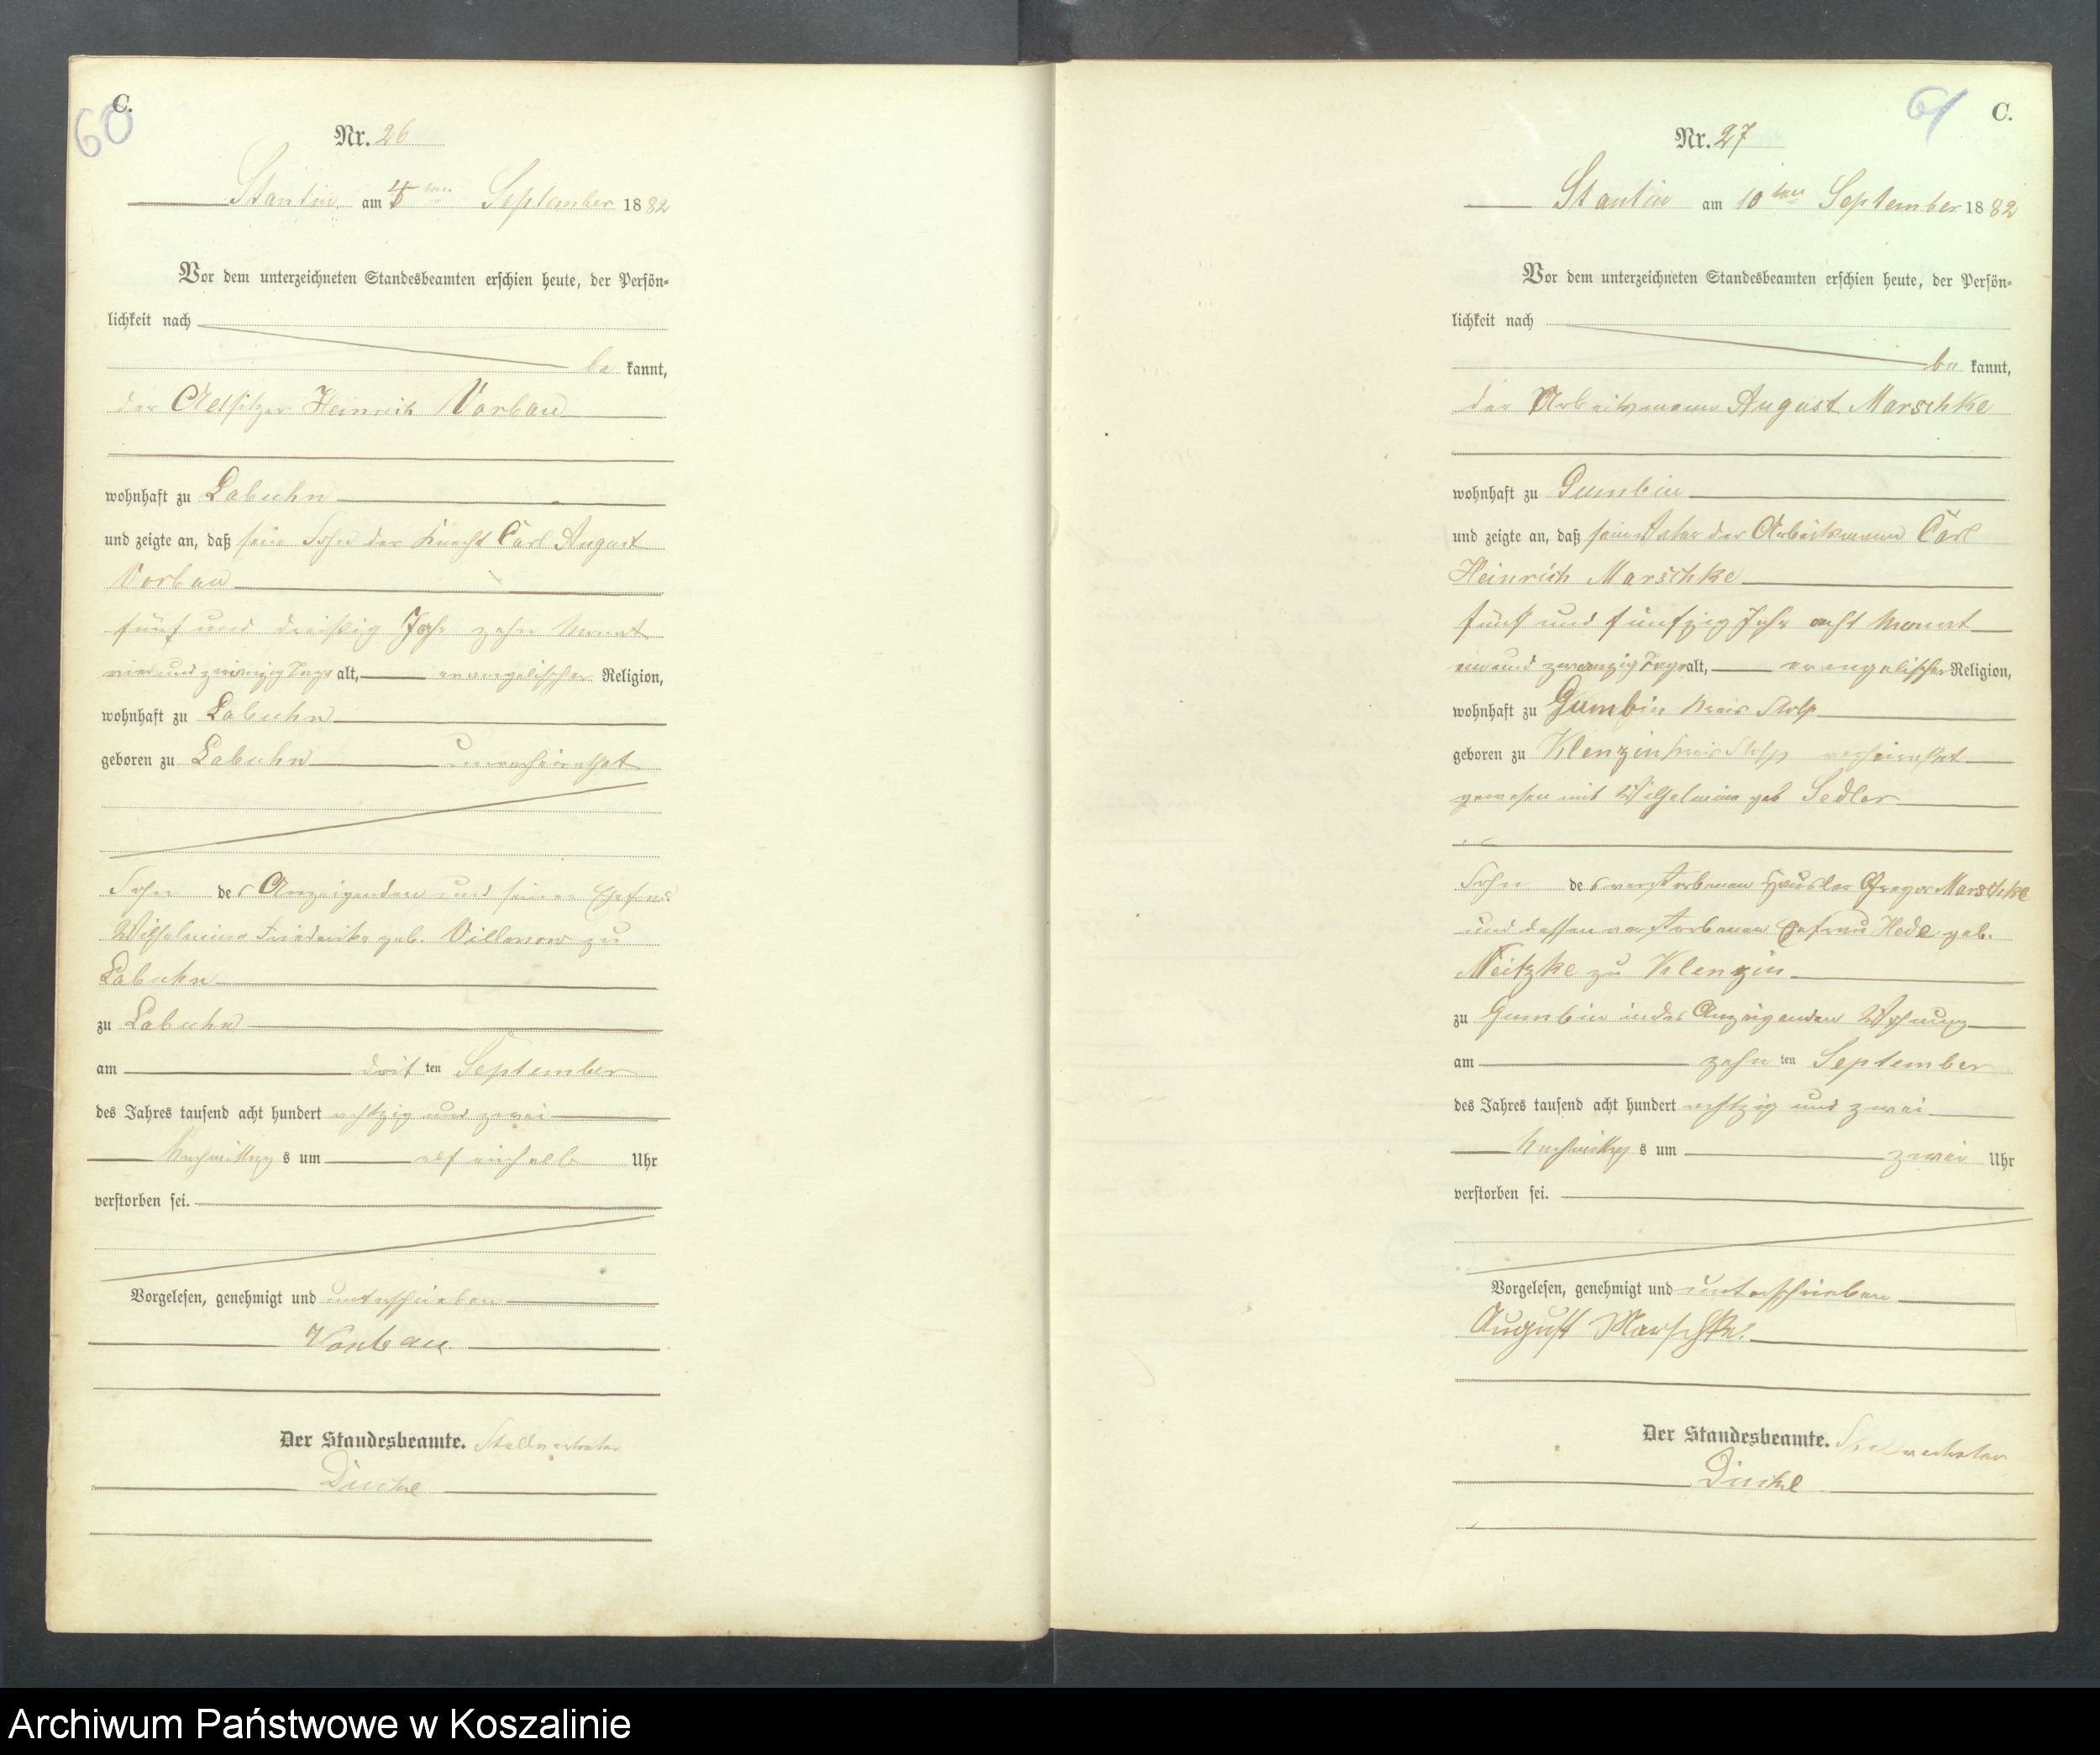 60
C.
Nr. 26
Stantin am 4ten September 1882
Vor dem unterzeichneten Standesbeamten erschien heute, der Persön-
lichkeit nach
be kannt,
der Heinrich Vorbau
wohnhaft zu Labuhn
und zeigte an, daß sein Sohn der Knecht Carl August
Vorbau
fünf und dreißig Jahr zehn Monat
und zwanzig Tage alt, evangelischer Religion,
wohnhaft zu Labuhn
geboren zu Labuhn unverheirathet
Sohn des Anzeigenden und seiner Ehefrau
Wilhelmine Friederike geb. Villnow zu
Labuhn
zu Labuhn
am dritten September
des Jahres tausend acht hundert achtzig und zwei
Nachmittags um elf einhalb Uhr
verstorben sei.
Vorgelesen, genehmigt und unterschrieben
Vorbau
Der Standesbeamte. Stellvertreter
61
C.
Nr. 27
Stantin am 10ten September 1882
Vor dem unterzeichneten Standesbeamten erschien heute, der Persön-
lichkeit nach
be kannt,
der Arbeitsmann August Marschke
wohnhaft zu Gumbin
und zeigte an, daß sein Vater der Arbeitsmann Carl
Heinrich Marschke
fünf und fünfzig Jahr acht Monat
ein und zwanzig Tage alt, evangelischer Religion,
wohnhaft zu Gumbin Kreis Stolp
geboren zu Klenzin Kreis Stolp verheirathet
gewesen mit Wilhelmine geb Sedler
Sohn des verstorbenen Häusler Gregor Marschke
und dessen verstorbenen Ehefrau Hede geb.
Neitzke zu Klenzin
zu Gumbin in des Anzeigenden Wohnung
am zehnten September
des Jahres tausend acht hundert achtzig und zwei
Nachmittags um zwei Uhr
verstorben sei.
Vorgelesen, genehmigt und unterschrieben
August Marschke.
Der Standesbeamte. Stellvertreter
Archiwum Państwowe w Koszalinie